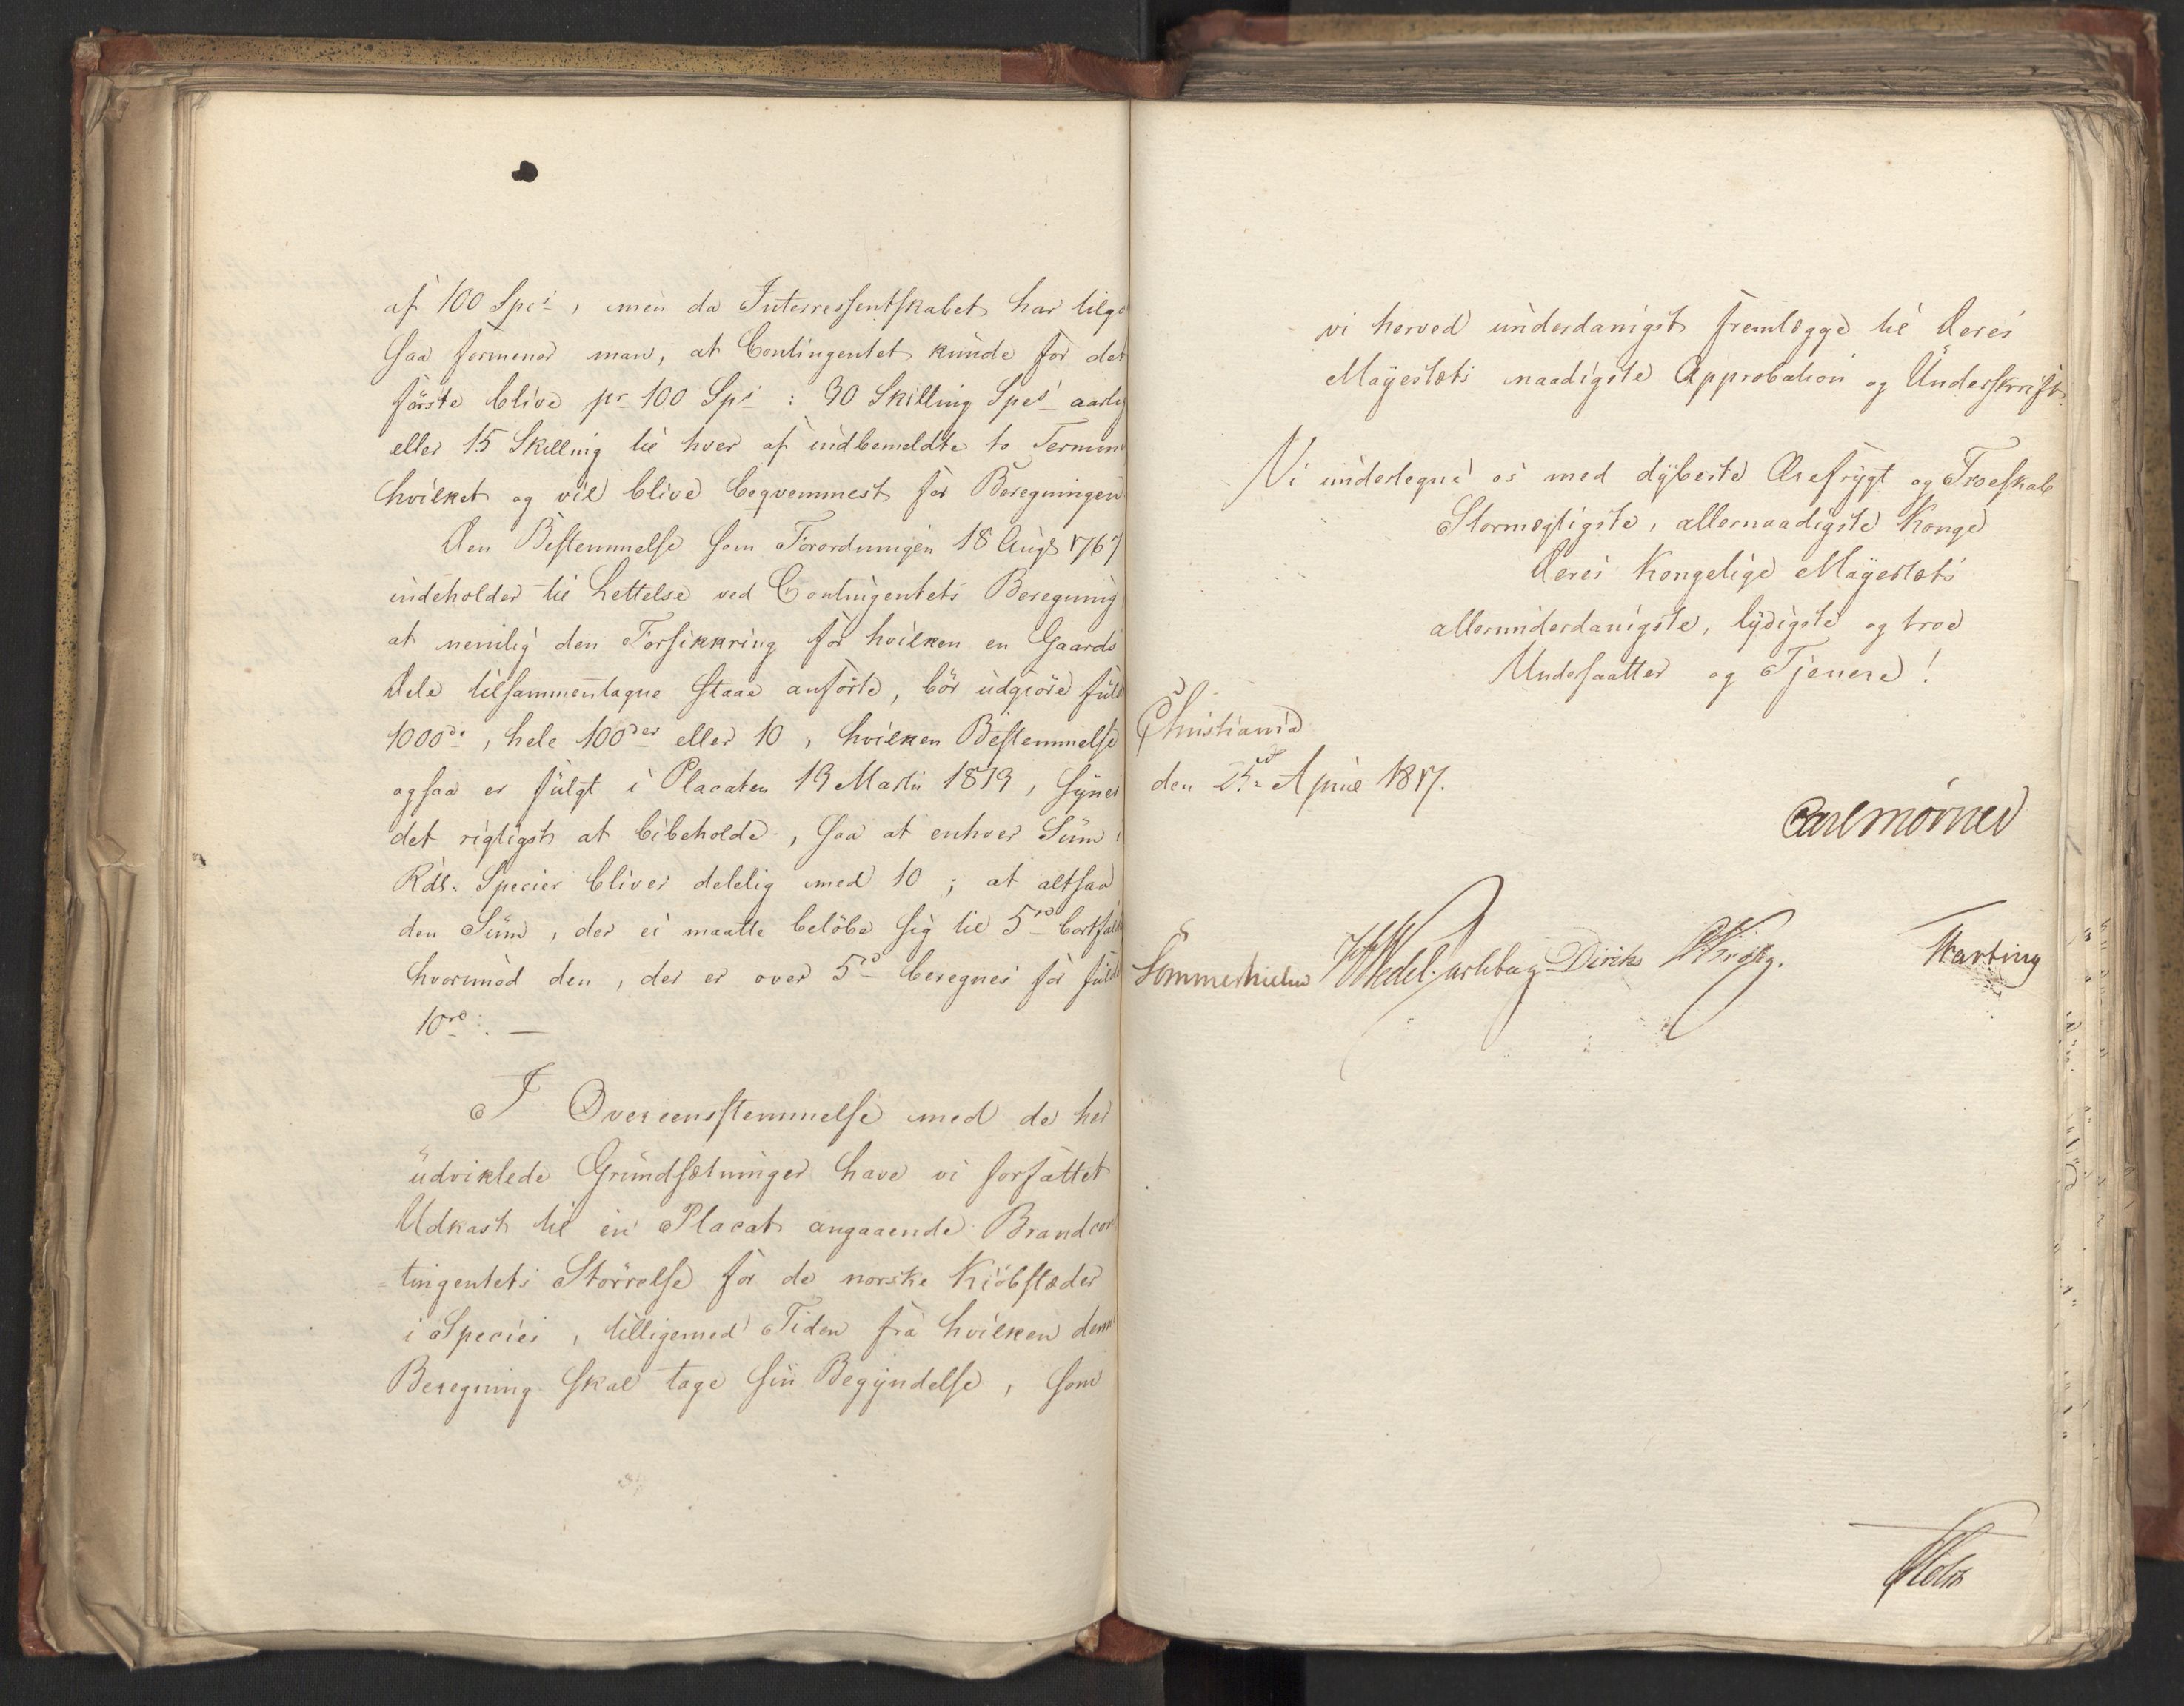 af 100 Spes, men da Interressentskabet har tilge
saa formener man, at Contingentet kunde for det
förste blive pr 100 Sps: 30 Skilling Spes aarlig
eller 15 Skilling til hver af indbemeldte to Termin
hvilket og vil blive beqvemmest for Beregningen
Den Bestemmelse som Forordningen 18 Augs 1767
indeholder til Lettelse ved Contingentets Beregning
at nemlig den Forsikkring for hvilken en Gaards
Dele tilsammentagne staae anförte, bör udgiöre fuld
1000de, hele 100der eller 10, hvilken Bestemmelse
ogsaa er fulgt i Placaten 13 Martii 1813, synes
det rigtigst at bibeholde, saa at enhver Sum i
Rdl. Species bliver delelig med 10; at altsaa
den Sum, der ei maatte belöbe sig til 5re bortfalde
hvorimod den, der er over 5re beregnes for fulde
10re. —
I Overeensstemmelse med de her
udviklede Grundsætninger have vi forfattet
Udkast til en Placat angaaende Brandcon
=tingentets Störrelse for de norske Kiöbstæder
i Species, tilligemed Tiden fra hvilken denne
Beregning skal tage sin Begyndelse, som
vi herved underdanigst fremlægge til Deres
Mayestæts naadigste Approbation og Underskrift.
Vi undertegne os med dybeste Ærefrygt og Troeskab
Stormægtigste, allernaadigste Konge
Deres Kongelige Mayestæts
allerunderdanigste, lydigste og troe
Undersaatter og Tjenere!
Christiania
den 25de April 1817.
Carl Mörner
Sommerhielm HWedel Jarlsberg Diriks CKrogh.
Hartvig
Holst